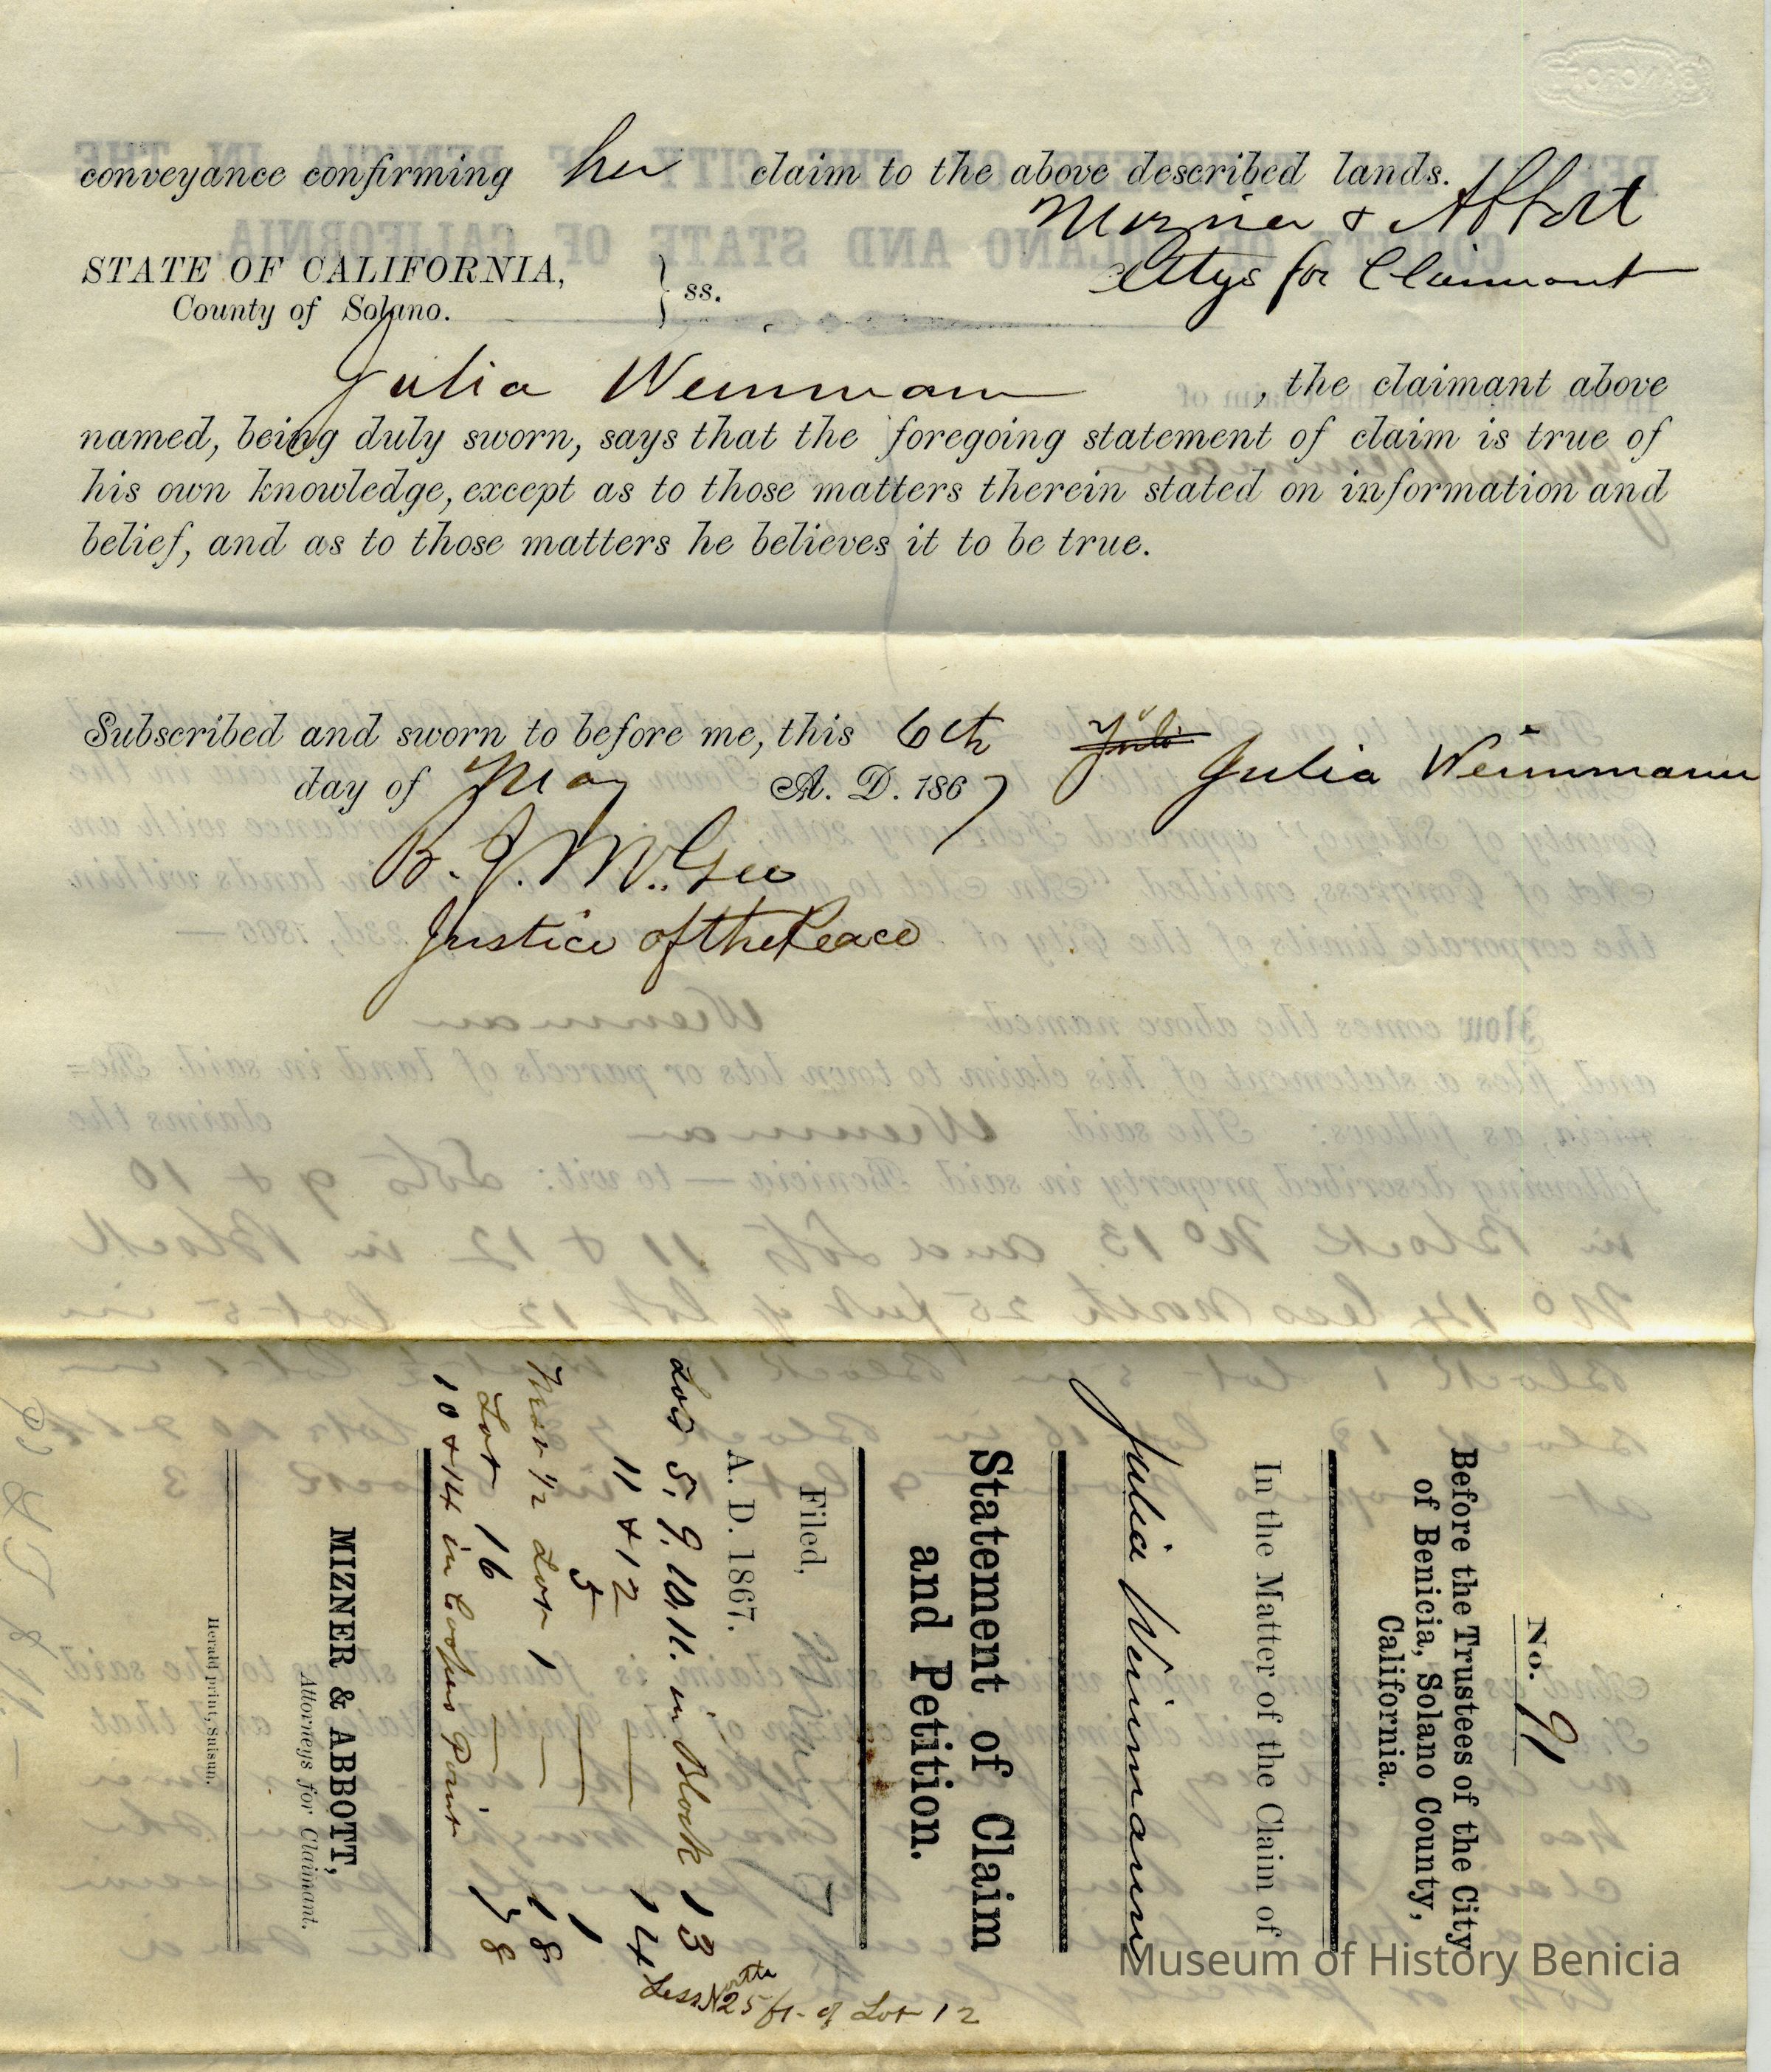 conveyance confirming her claim to the above described lands.
Mizner & Abbott
Attys for Claimant
STATE OF CALIFORNIA,
County of Solano.
} ss.
Julia Weinmann, the claimant above
named, being duly sworn, says that the foregoing statement of claim is true of
his own knowledge, except as to those matters therein stated on information and
belief, and as to those matters he believes it to be true.
Subscribed and sworn to before me, this 6th
day of May A. D. 1867
Julia Weinmann
B. J. McGee
Justice of the Peace
No. 91
Before the Trustees of the City
of Benicia, Solano County,
California.
In the Matter of the Claim of
Julia Weinmann
Statement of Claim
and Petition.
Filed, 7
A. D. 1867.
Lots 5, 9, 10, 11. in Block 13
11 & 12 — 14 Less North 25 ft. of Lot 12
5 — 1
West 1/2 Lot 1 — 18
Lot 16 — 78
10 & 14 in Coopers Point
MIZNER & ABBOTT,
Attorneys for Claimant.
Herald print, Suisun.
Museum of History Benicia